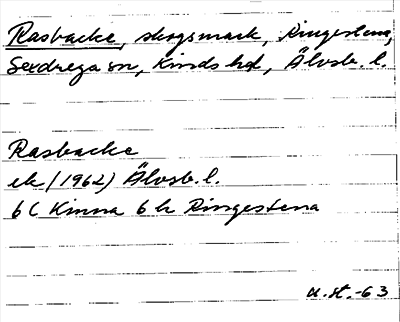 Rasbacke, skogsmark, Ringestena,
Sexdrega sn, Kinds hd, Älvsb. l.
Rasbacke
ek (1962) Älvsb. l.
6 C Kinna 6 h Ringestena
u. st. -63